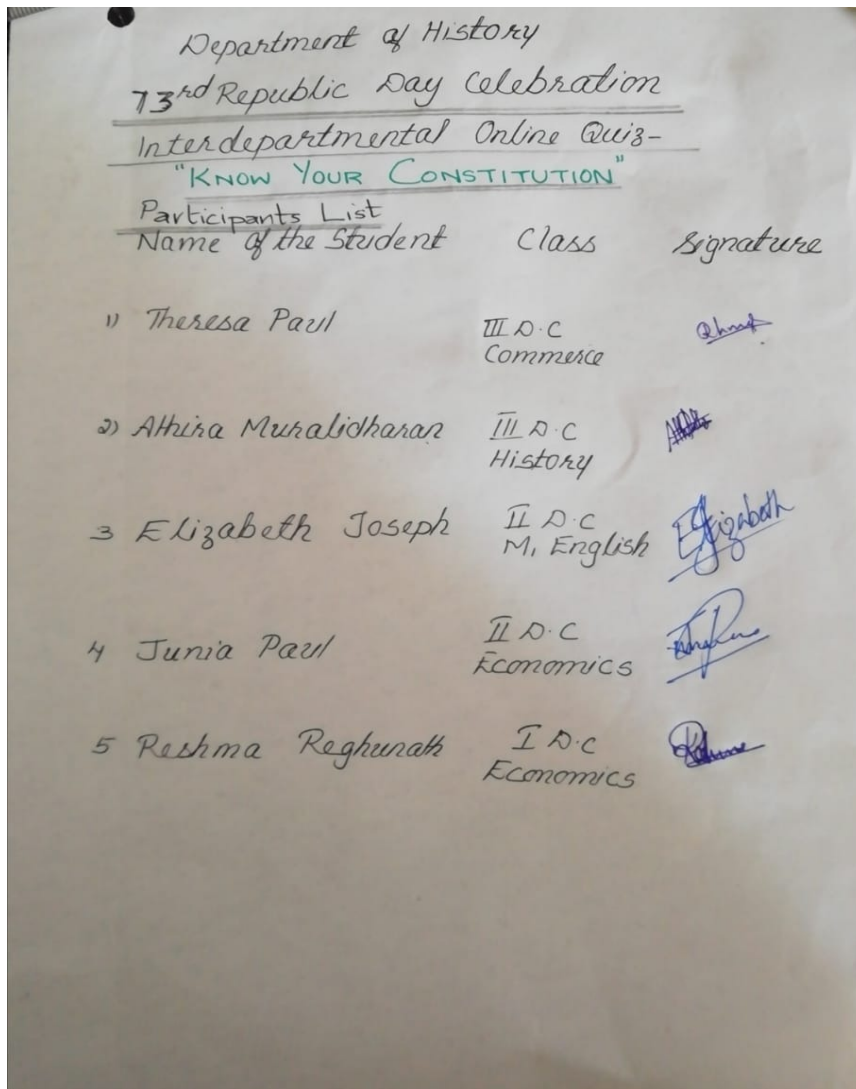 Department of History
73rd Republic Day Celebration
Interdepartmental Online Quiz-
"KNOW YOUR CONSTITUTION"
Participants List
Name of the Student Class Signature
1) Theresa Paul III D.C
Commerce
2) Athira Muralidharan III D.C
History
3 Elizabeth Joseph II D.C Elizabeth
M. English
4 Junia Paul II D.C
Economics
5 Reshma Reghunath I D.C
Economics